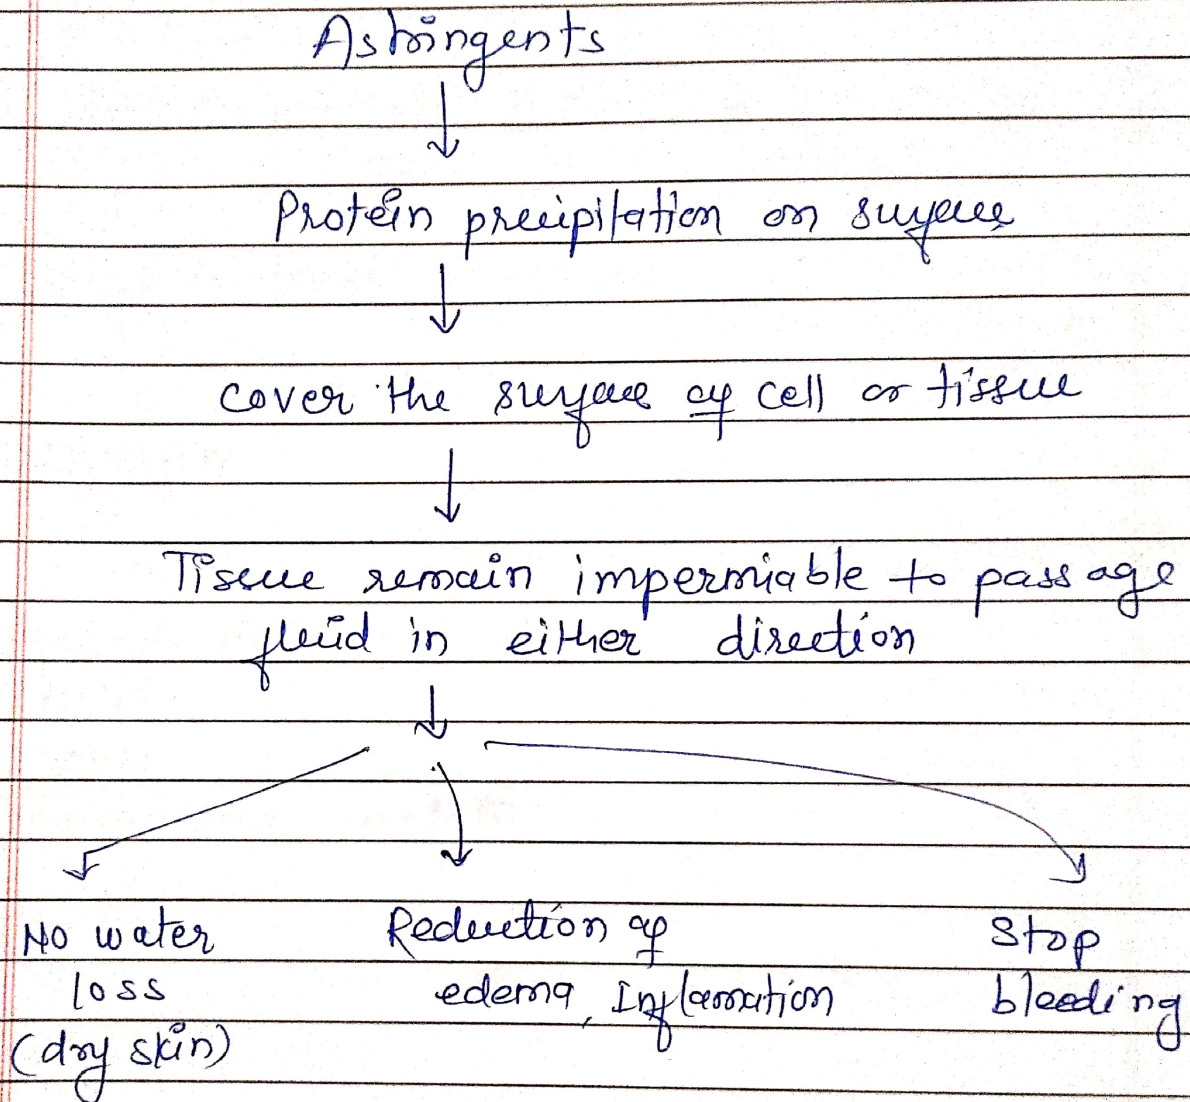 Astringents
Protein precipitation on surface
cover the surface of cell or tissue
Tissue remain impermiable to passage
fluid in either direction
No water
loss
(dry skin)
Reduction of
edema, Inflamation
Stop
bleeding